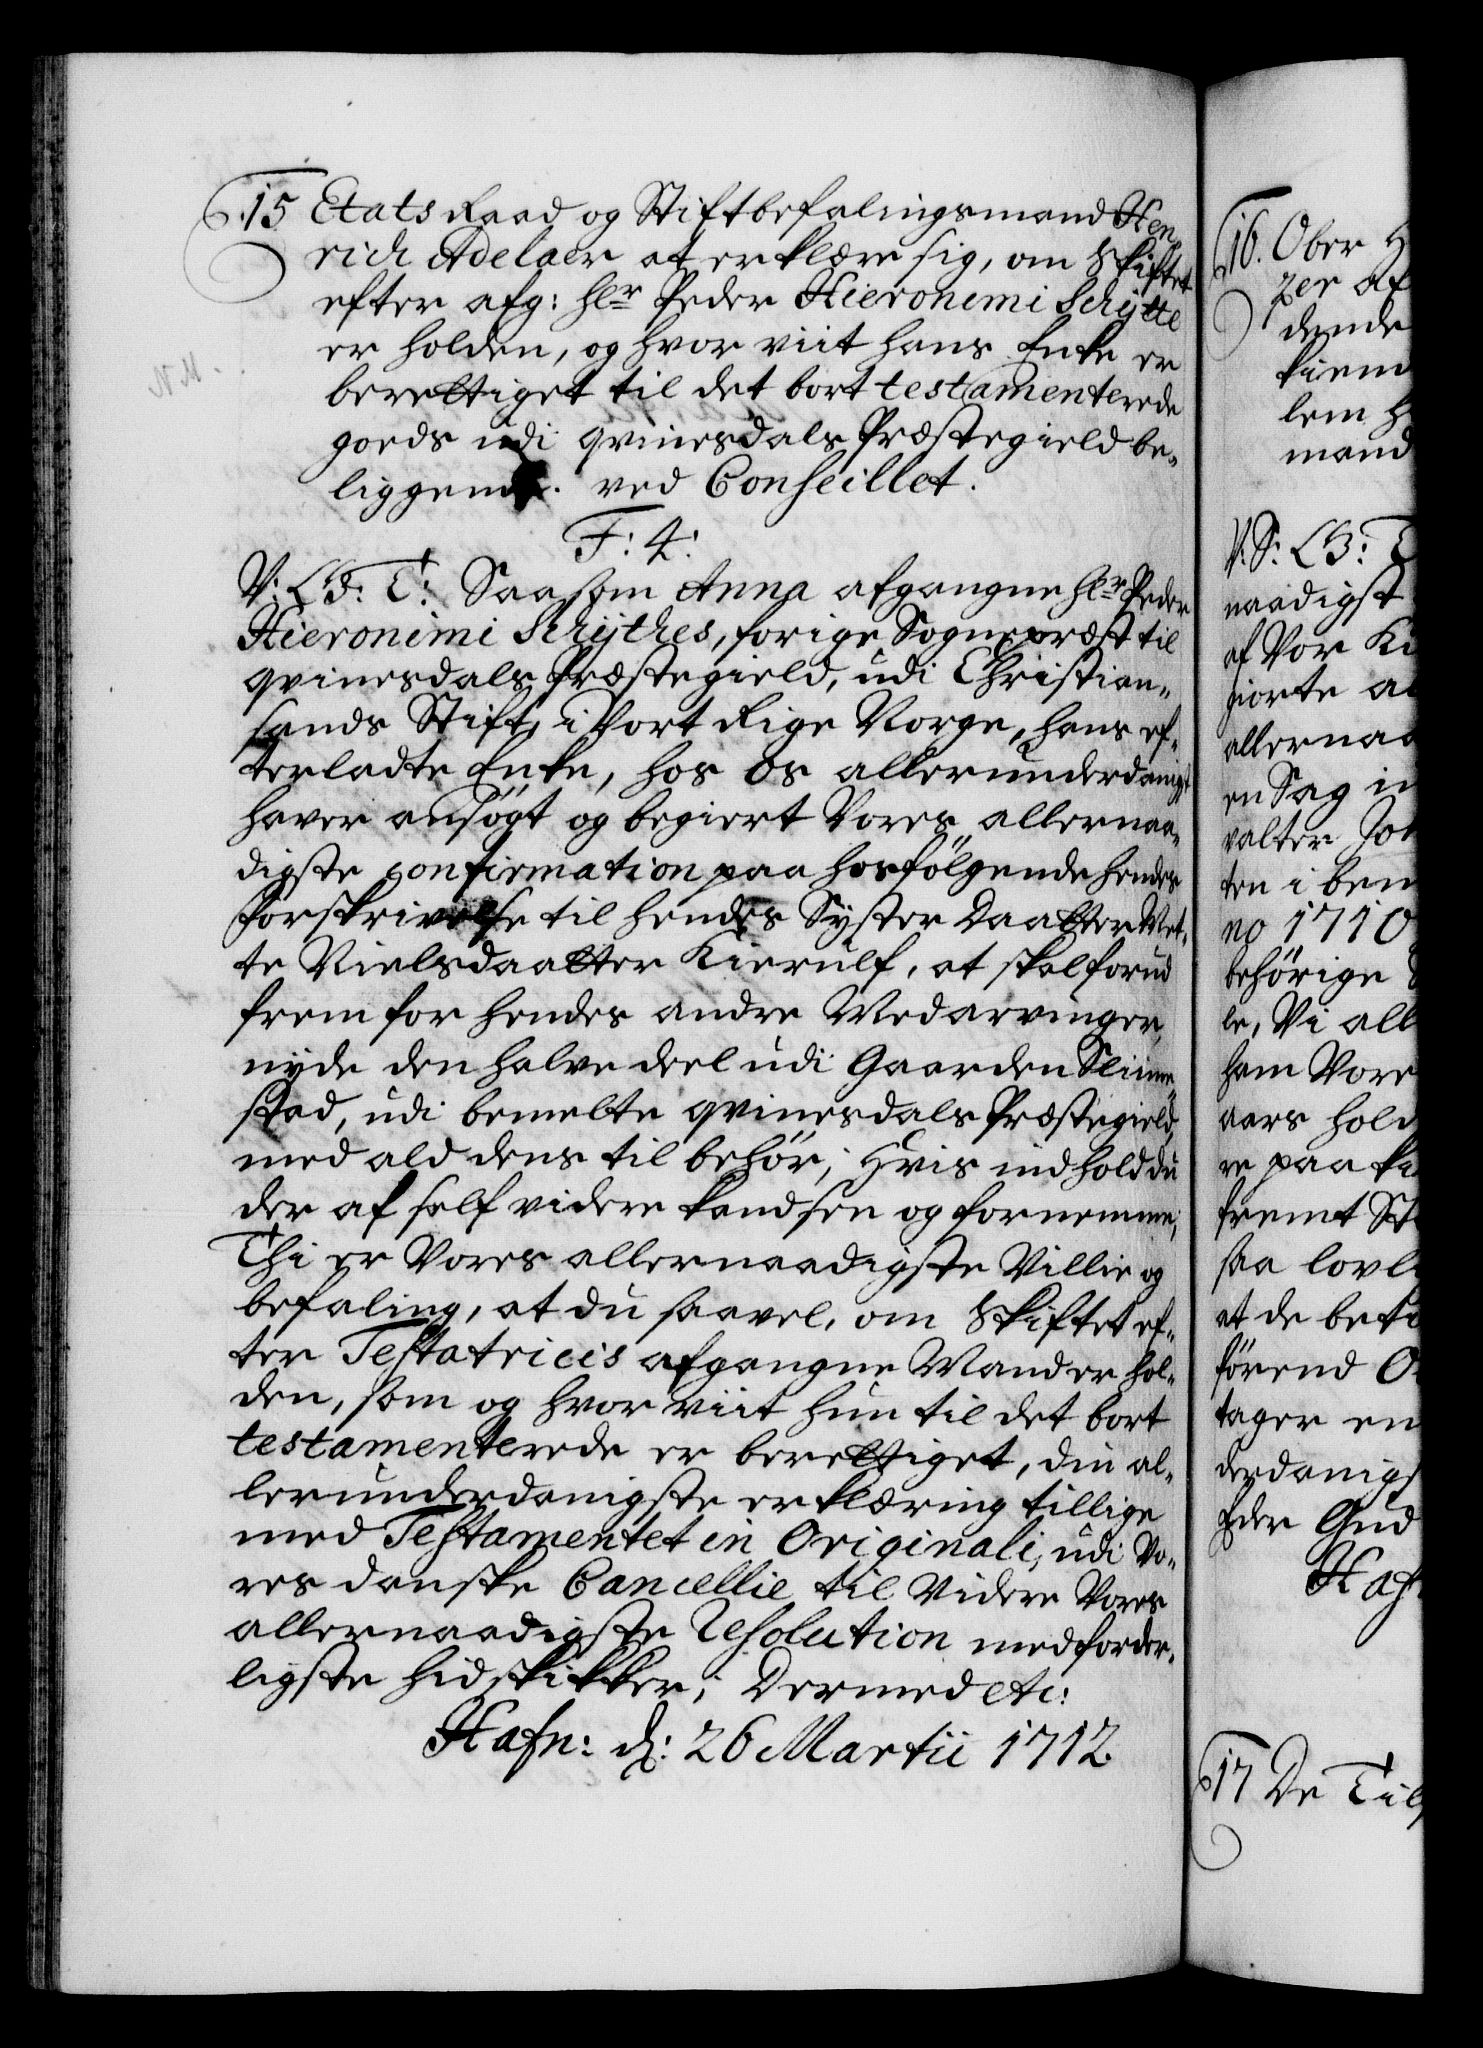 15 Etats Raad og Stiftbefalingsmand Hen-
rich Adelaer at erklære sig, om Skiftet
efter afg: Hr Peder Hieronimi Schytte
er holden, og hvor viit hans Enke er
berettiget til det bort testamenterede
goeds udi qvinesdals Præstegield be-
liggende. ved Conseillet.
F: 4:
V: G: T: Saasom Anna afgangne Hr Peder
Hieronimi Schythes, forige Sognepræst til
qvinesdals Præstegield, udi Christian-
sands Stift, i Vort Rige Norge, hans ef-
terladte Enke, hos Os allerunderdanigst
haver ansögt og begiert Vores allernaa-
digste confirmation paa hosfölgende hendes
forskrivelse til hendes Syster Daatter Met-
te Nielsdaatter Kierulf, at skal forud
frem for hendes andre Medarvinger,
nyde den halve deel udi Gaarden Slimme-
stad, udi bemelte qvinesdals Præstegield,
med ald dens til behör; Hvis indhold du
der af self videre kand see og fornemme;
Thi er Vores allernaadigste Villie og
befaling, at du saavel, om Skiftet ef-
ter Testatricis afgangne Mand er hol-
den, som og hvor viit hun til det bort
testamenterede er berettiget, din al-
lerunderdanigste erklæring tillige
med Testamentet in Originali, udi Vo-
res danske Cancellie til Videre Vores
allernaadigste Resolution med forder-
ligste hidskikker; Dermed etc:
Hafn: d: 26 Martii 1712.
16. Ober H
zer af
dende
kiem
lem H
mand
V: S: G: T
naadigst
af Vor Ki
giorte a
allernaa
en Sag in
valter Joh
ten i bem
no 1710
behörige
le, Vi all
ham Vore
aars hold
re paa ka
fremt St
saa lovl
at de beti
förend O
tager en
derdanigs
Eder Gud
Haf
17 De Til